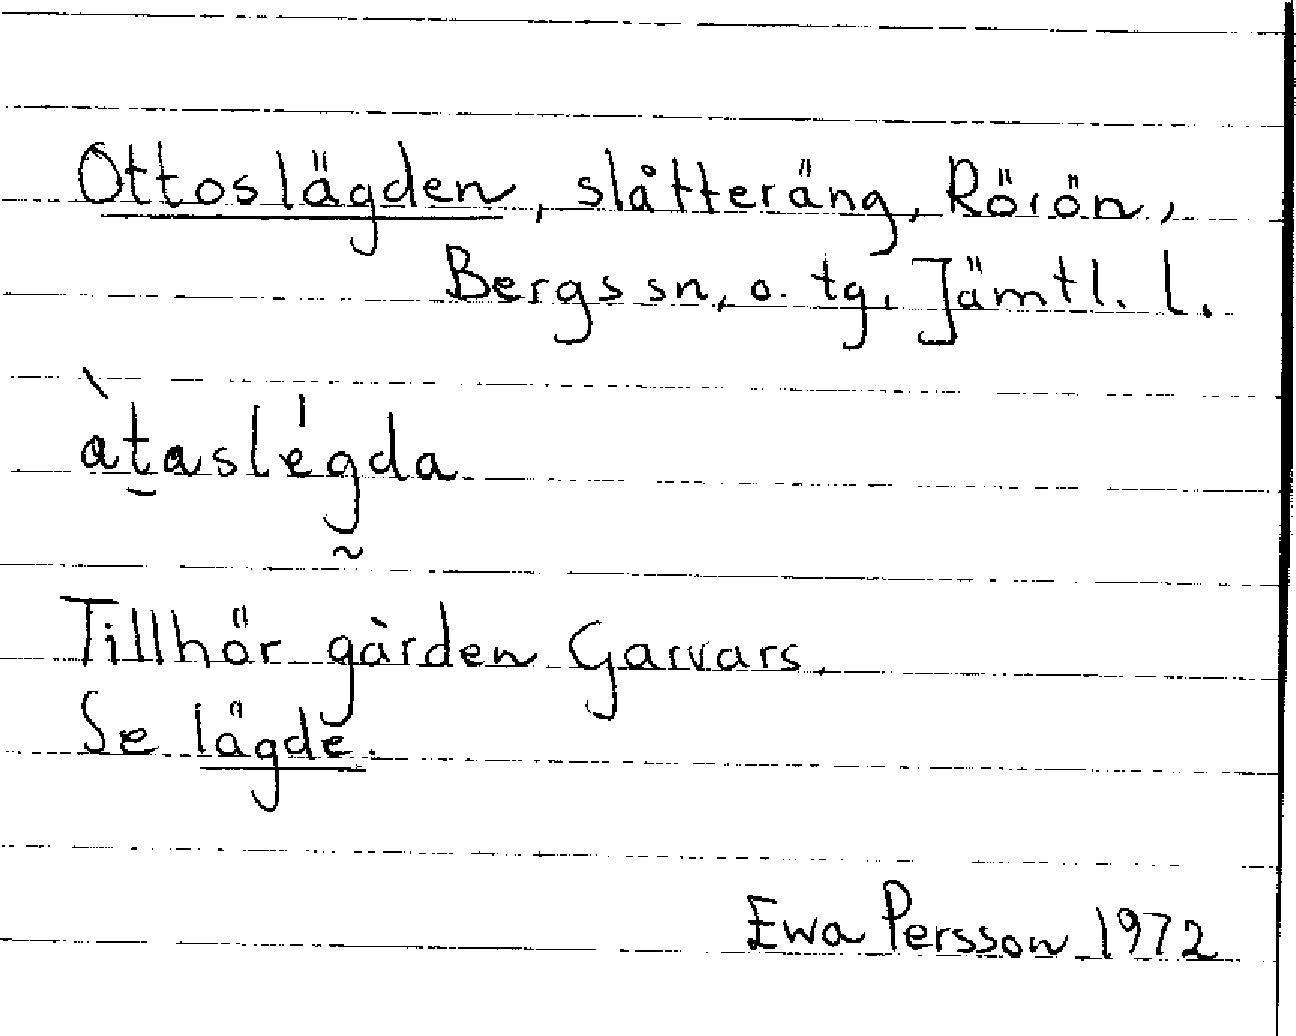 Ottoslägden, slåtteräng, Rörön,
Bergs sn, o. tg, Jämtl. l.
àtaslégda
Tillhör gården Garvars.
Se lägde.
Ewa Persson 1972